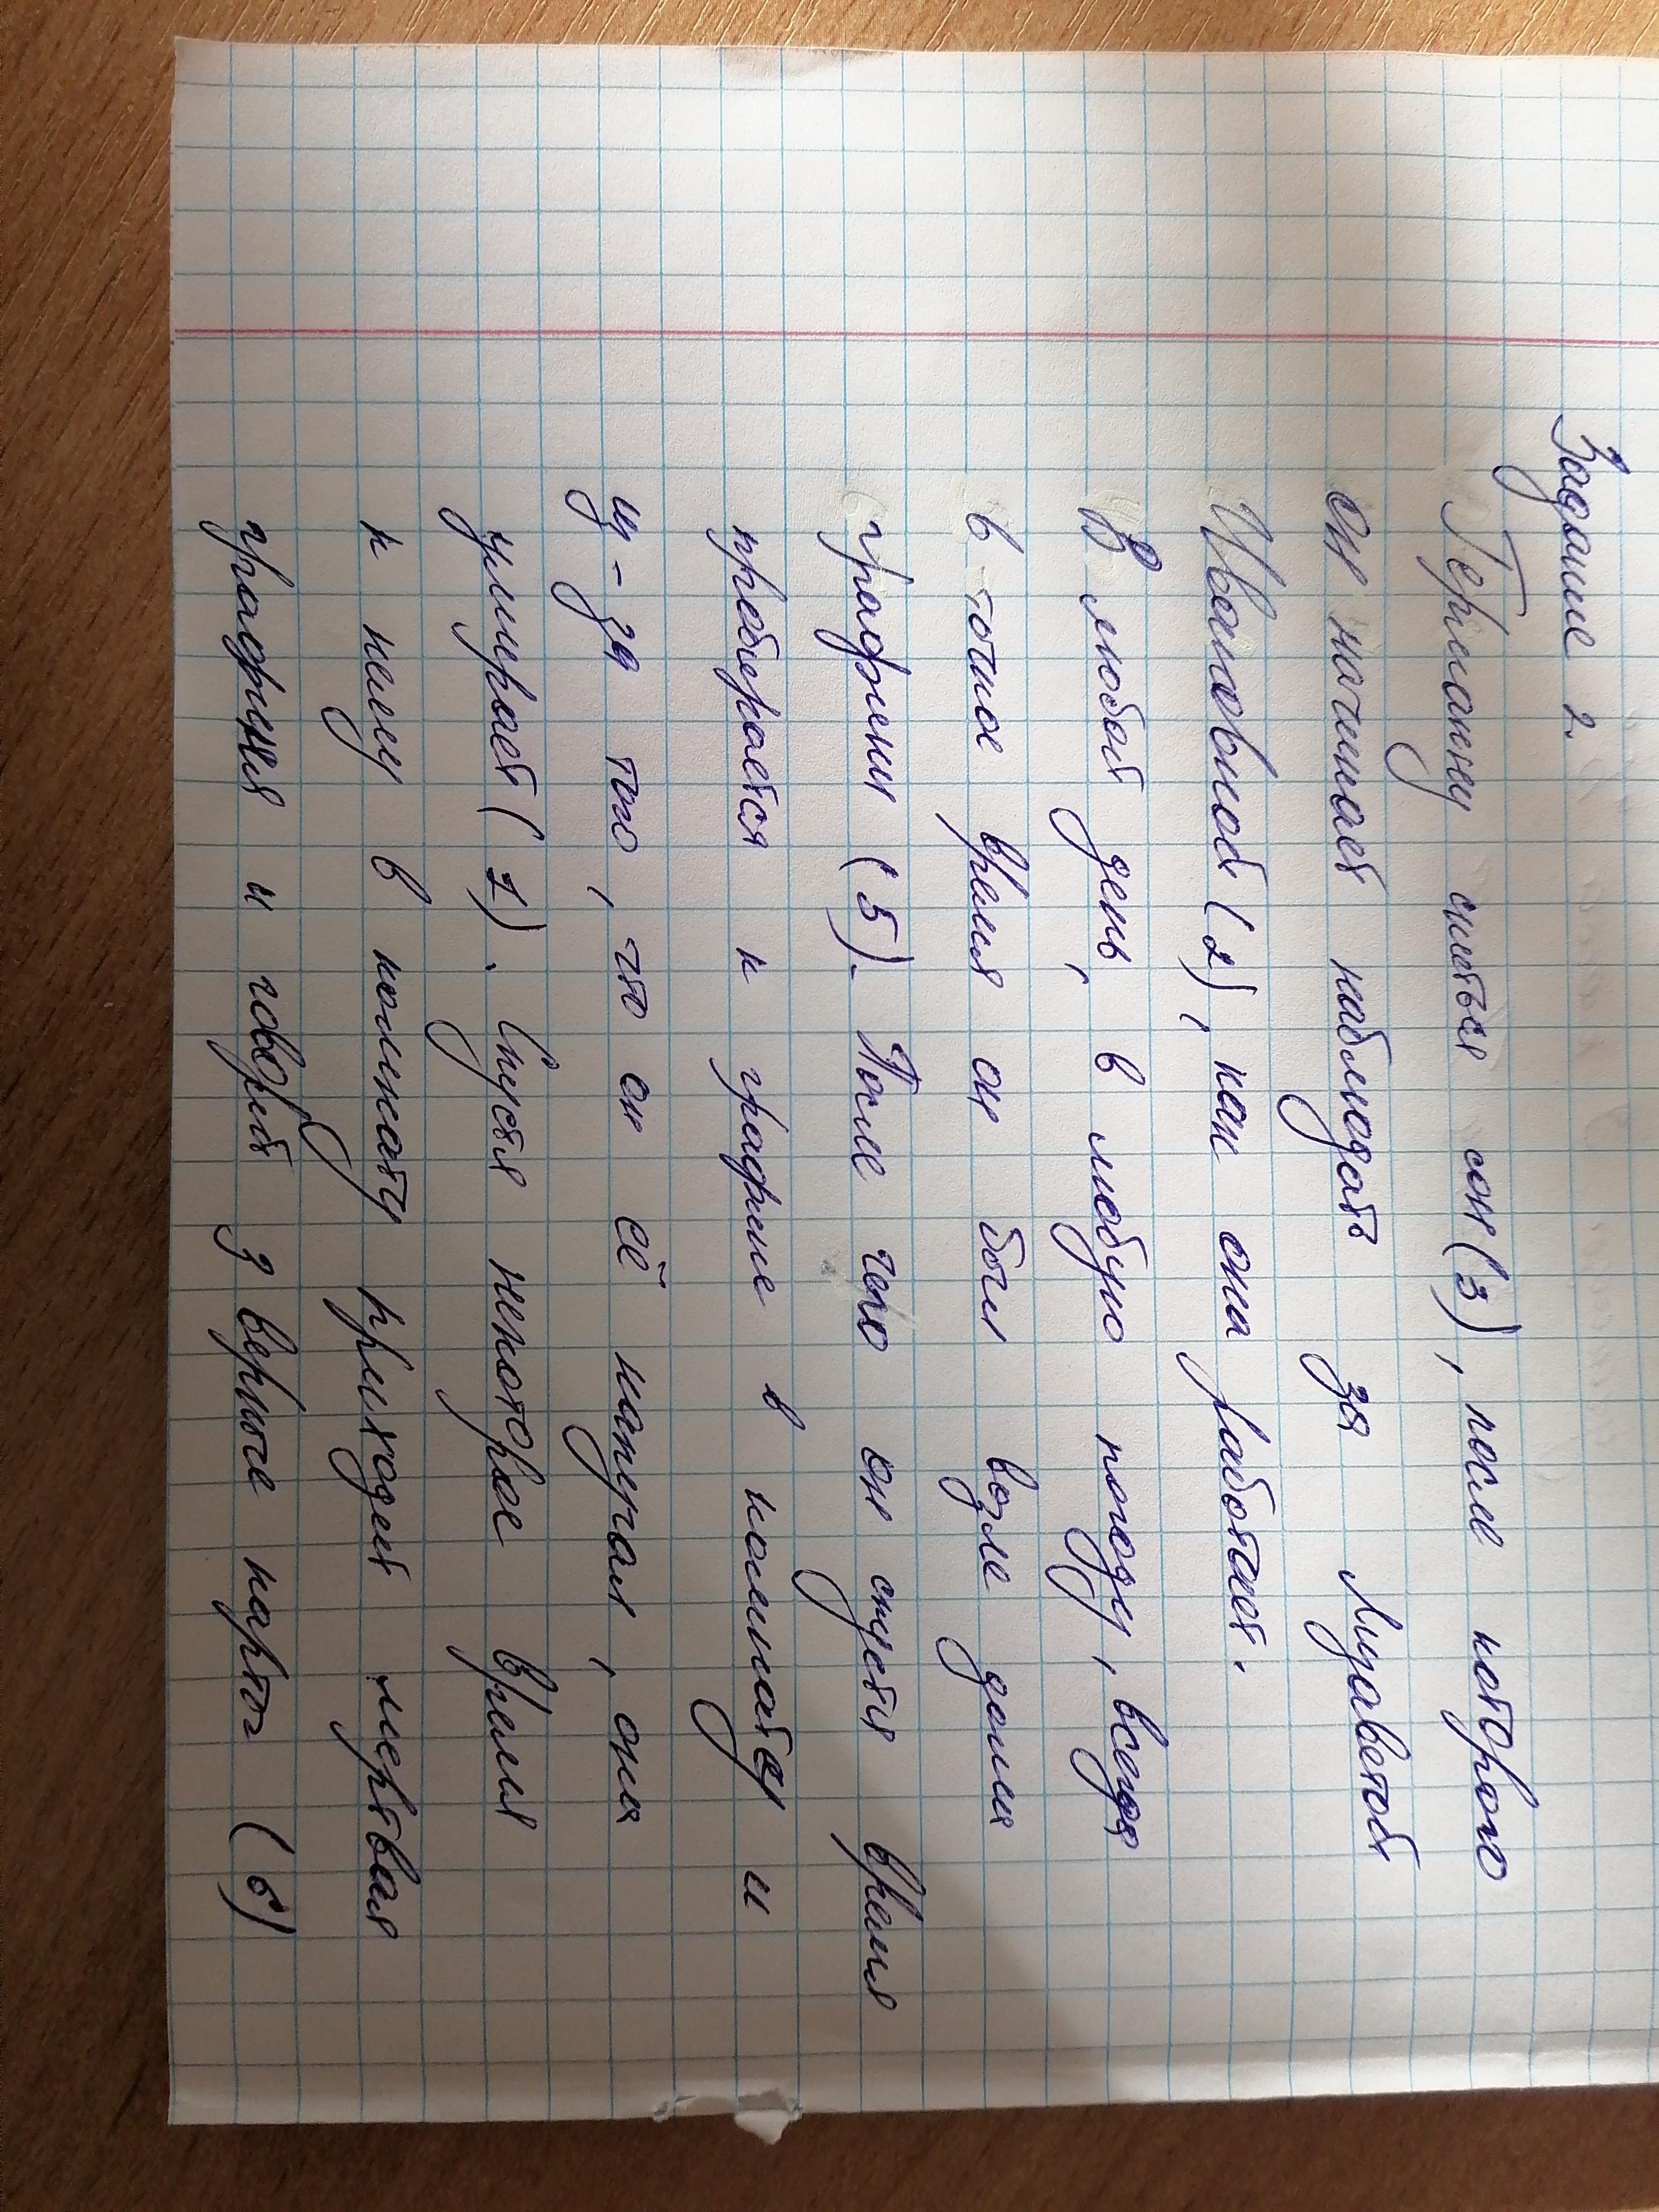 Задание 2.
Германну сниться сон (3), после которого
он начинает наблюдать за Лизаветой
Ивановной (2), как она работает.
В любой день, в любую погоду, всегда
в точное время он был возле дома
графини (5). После чего он спустя время
пробирается к графине в комнату и
из-за того, что он её напугал, она
умирает (1). Спустя некоторое время
к нему в комнату приходит мертвая
графиня и говорит 3 верные карты (6)